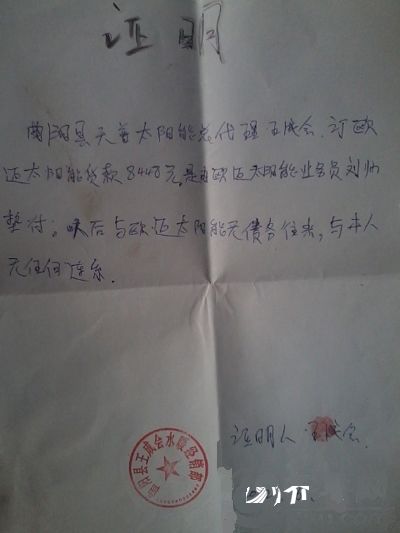 证明
阳县天普太阳能总代理王成会,订欧
迈太阳能货款8440元,是由欧迈太阳能业务员刘帅
垫付;以后与欧迈太阳能无债务往来,与本人
无任何连系.
证明人 王成会.
阳县王成会水暖经销部